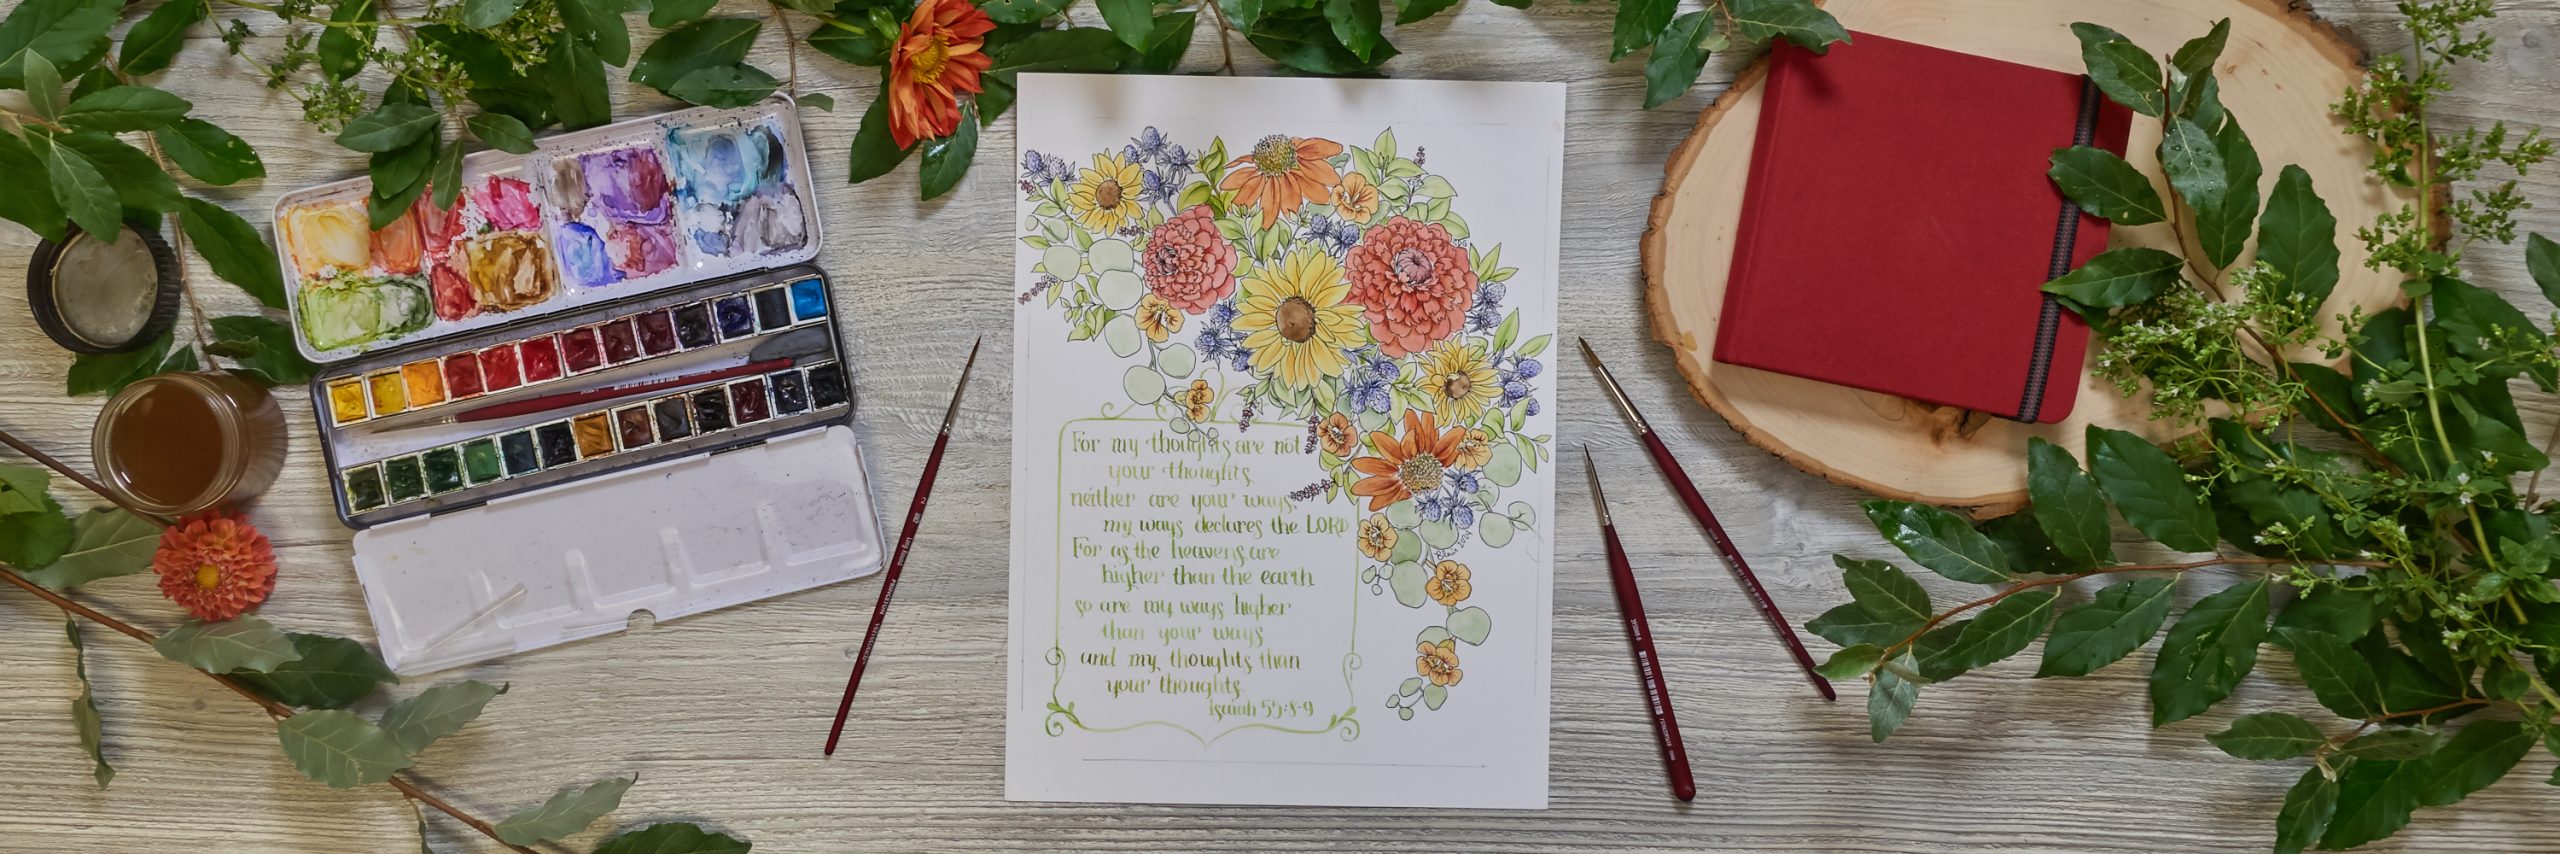 For my thoughts are not
your thoughts
neither are your ways.
my ways declares the LORD
For as the heavens are
higher than the earth
so are my ways higher
than your ways
and my thoughts than
your thoughts.
Isaiah 55:8-9
Blair 2024
PRINCETON